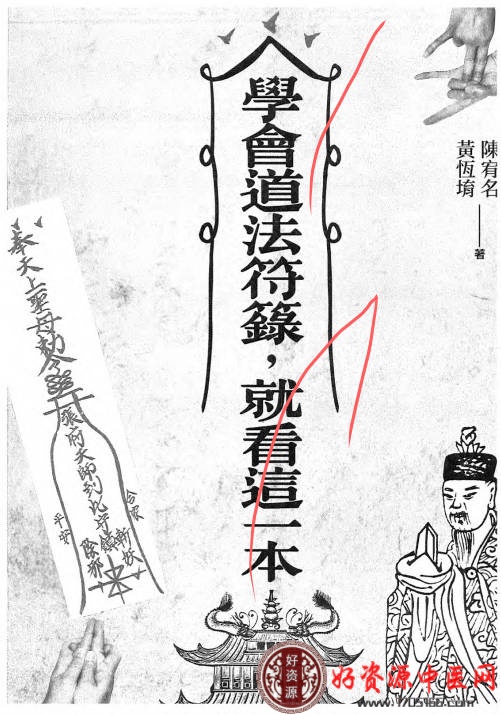 學會道法符籙，就看這一本
陳宥名
黃恆堉
著
奉天上聖母勅令
張府天師到此平鎮
斬妖
除邪
合家
平安
好资源
好资源中医网